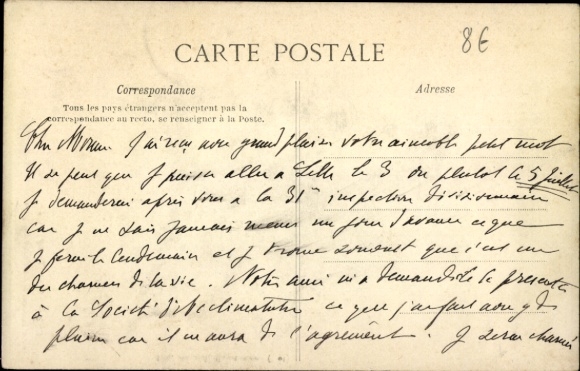 8€
CARTE POSTALE
Correspondance
Adresse
Tous les pays étrangers n'acceptent pas la
correspondance au recto, se renseigner à la Poste.
J'ai reçu avec grand plaisir votre aimable petit mot
Il se peut que je puisse aller à Lille le 3 ou plutôt le 5 Juillet
Je demanderai après vous à la 31e inspection divisionnaire
car je ne sais jamais même un jour d'avance ce que
je ferai le lendemain et je trouve souvent que c'est un
des charmes de la vie. Notre ami m'a demandé de le présenter
à la Société d'acclimatation ce que j'ai fait avec gd
plaisir car il m'aura de l'agrément. Je serai charmé